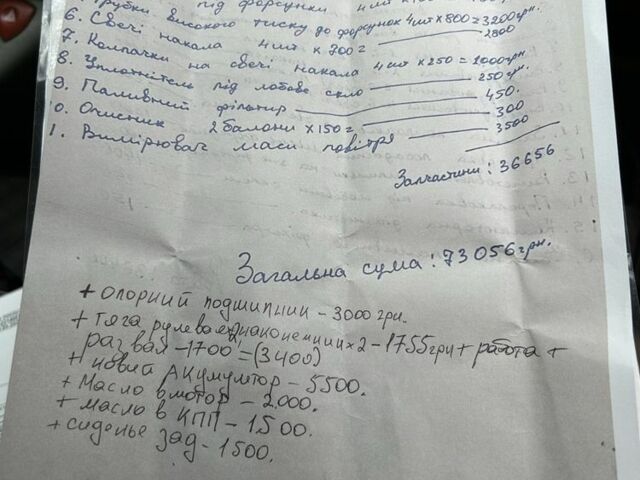 під форсунки 4 шт
6. Трубки високого тиску до форсунок 4 шт х 800 = 3200 грн.
Свечі накала 4 шт х 700 = 2800
7. Колпачки на свечі накала 4 шт х 250 = 1000 грн.
8. Уплотнітель під лобове скло 250 грн.
9. Паливний фільтир 450.
0. Очисник 2 балони х 150 = 300
1. Вимірювач маси повітря 3500
Запчастини: 36656
Загальна сума: 73056 грн.
+ Опорний подшипник - 3000 грн.
+ Тяга рулевая х 2 - 1755 грн + работа +
развал - 1700 = (3400)
+ новий Акумултор - 5500.
+ Масло в мотор - 2.000.
+ масло в КПП - 1.500.
+ сиденье зад - 1500.